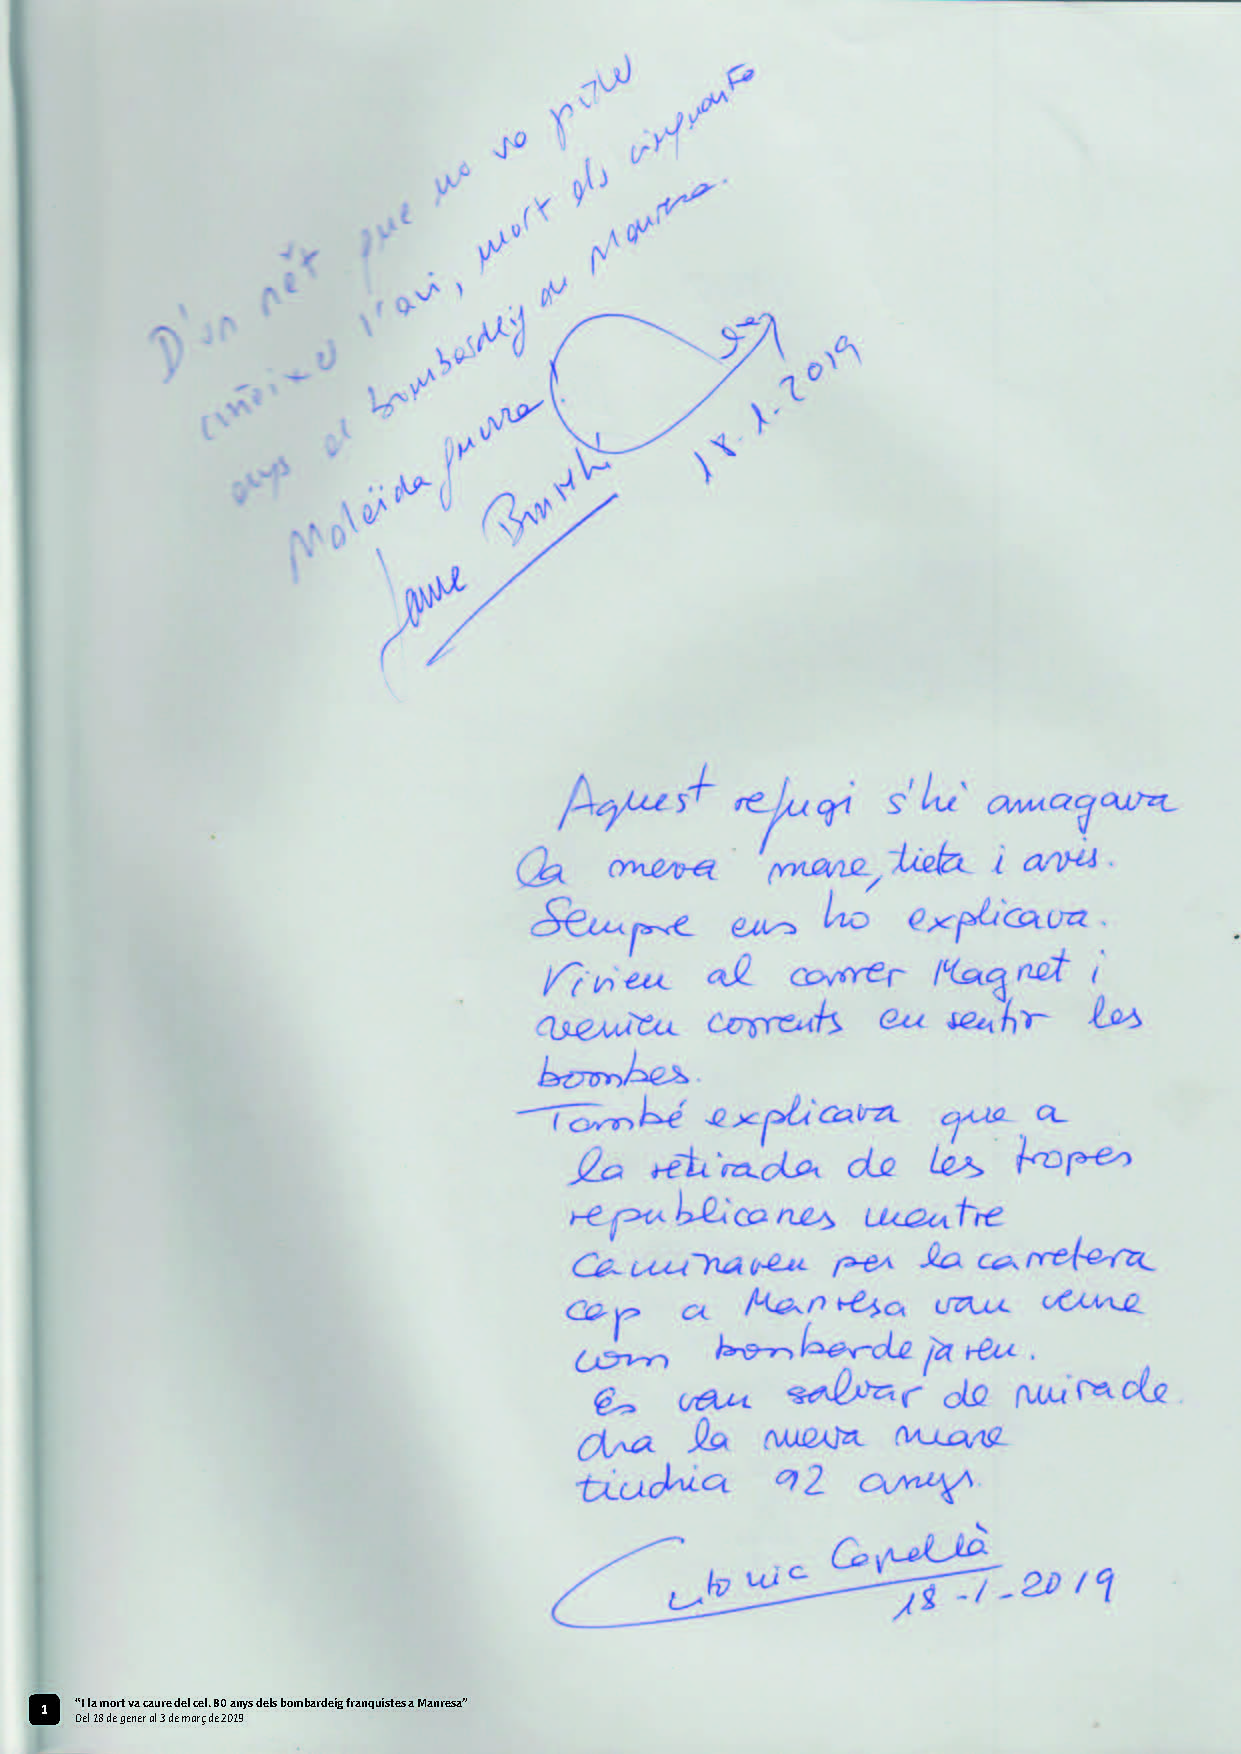 D'un nét que no va poder
conèixer l'avi, mort els cinquanta
anys al bombardeig de Manresa.
Maleïda guerra!
Jaume
18-1-2019
Aquest refugi s'hi amagava
la meva mare, tieta i avis.
Sempre ens ho explicava.
Vivien al carrer Magnet i
venien corrents en sentir les
bombes.
També explicava que a
la retirada de les tropes
republicanes mentre
caminaven per la carretera
cap a Manresa van veure
com bonbardejaven.
Es van salvar de miracle.
Ara la meva mare
tindria 92 anys.
Antonia Capellà
18-1-2019
1
"I la mort va caure del cel. 80 anys dels bombardeig franquistes a Manresa"
Del 18 de gener al 3 de març de 2019